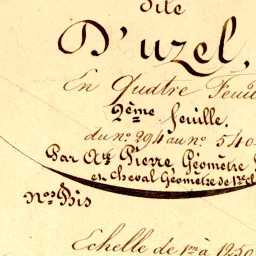 dite
D'uzel,
En Quatre Feuil
2ème feuille.
du n° 294 au n° 540
Par Mr Pierre, Géomètre
et Cheval Géomètre de 1re cl
Nos Bis
Echelle de 1 m à 1250